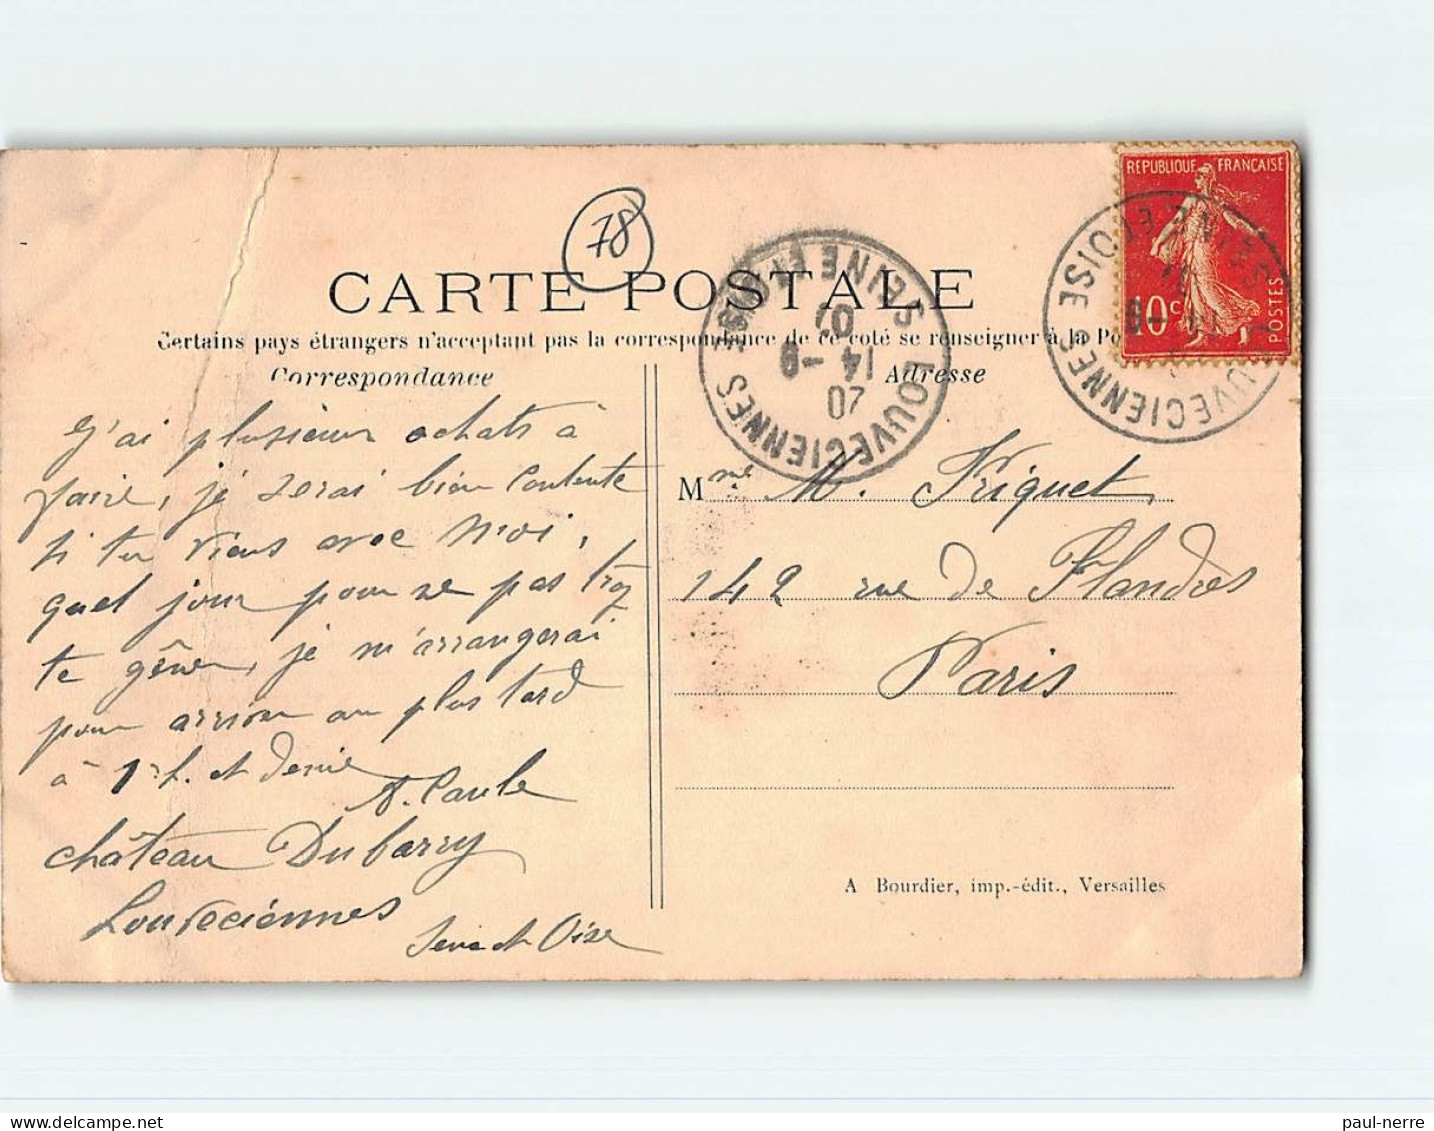 78
CARTE POSTALE
Certains pays étrangers n'acceptant pas la correspondance de ce coté se renseigner à la Po
Correspondance
Adresse
J'ai plusieur achats à
faire, je serai bien contente
si tu viens avec moi,
quel jour pour ne pas trop
te gêner, je m'arrangerai
pour arriver au plus tard
à 1 h. et demie
A. Paule
château Dubarry
Louveciennes
Seine et Oise
Mme M. Friquet
142 rue de Flandres
Paris
A Bourdier, imp.-édit., Versailles
REPUBLIQUE FRANÇAISE
10c
POSTES
LOUVECIENNES SEINE ET OISE
20
14 -9
07
LOUVECIENNES SEINE ET OISE
paul-nerre